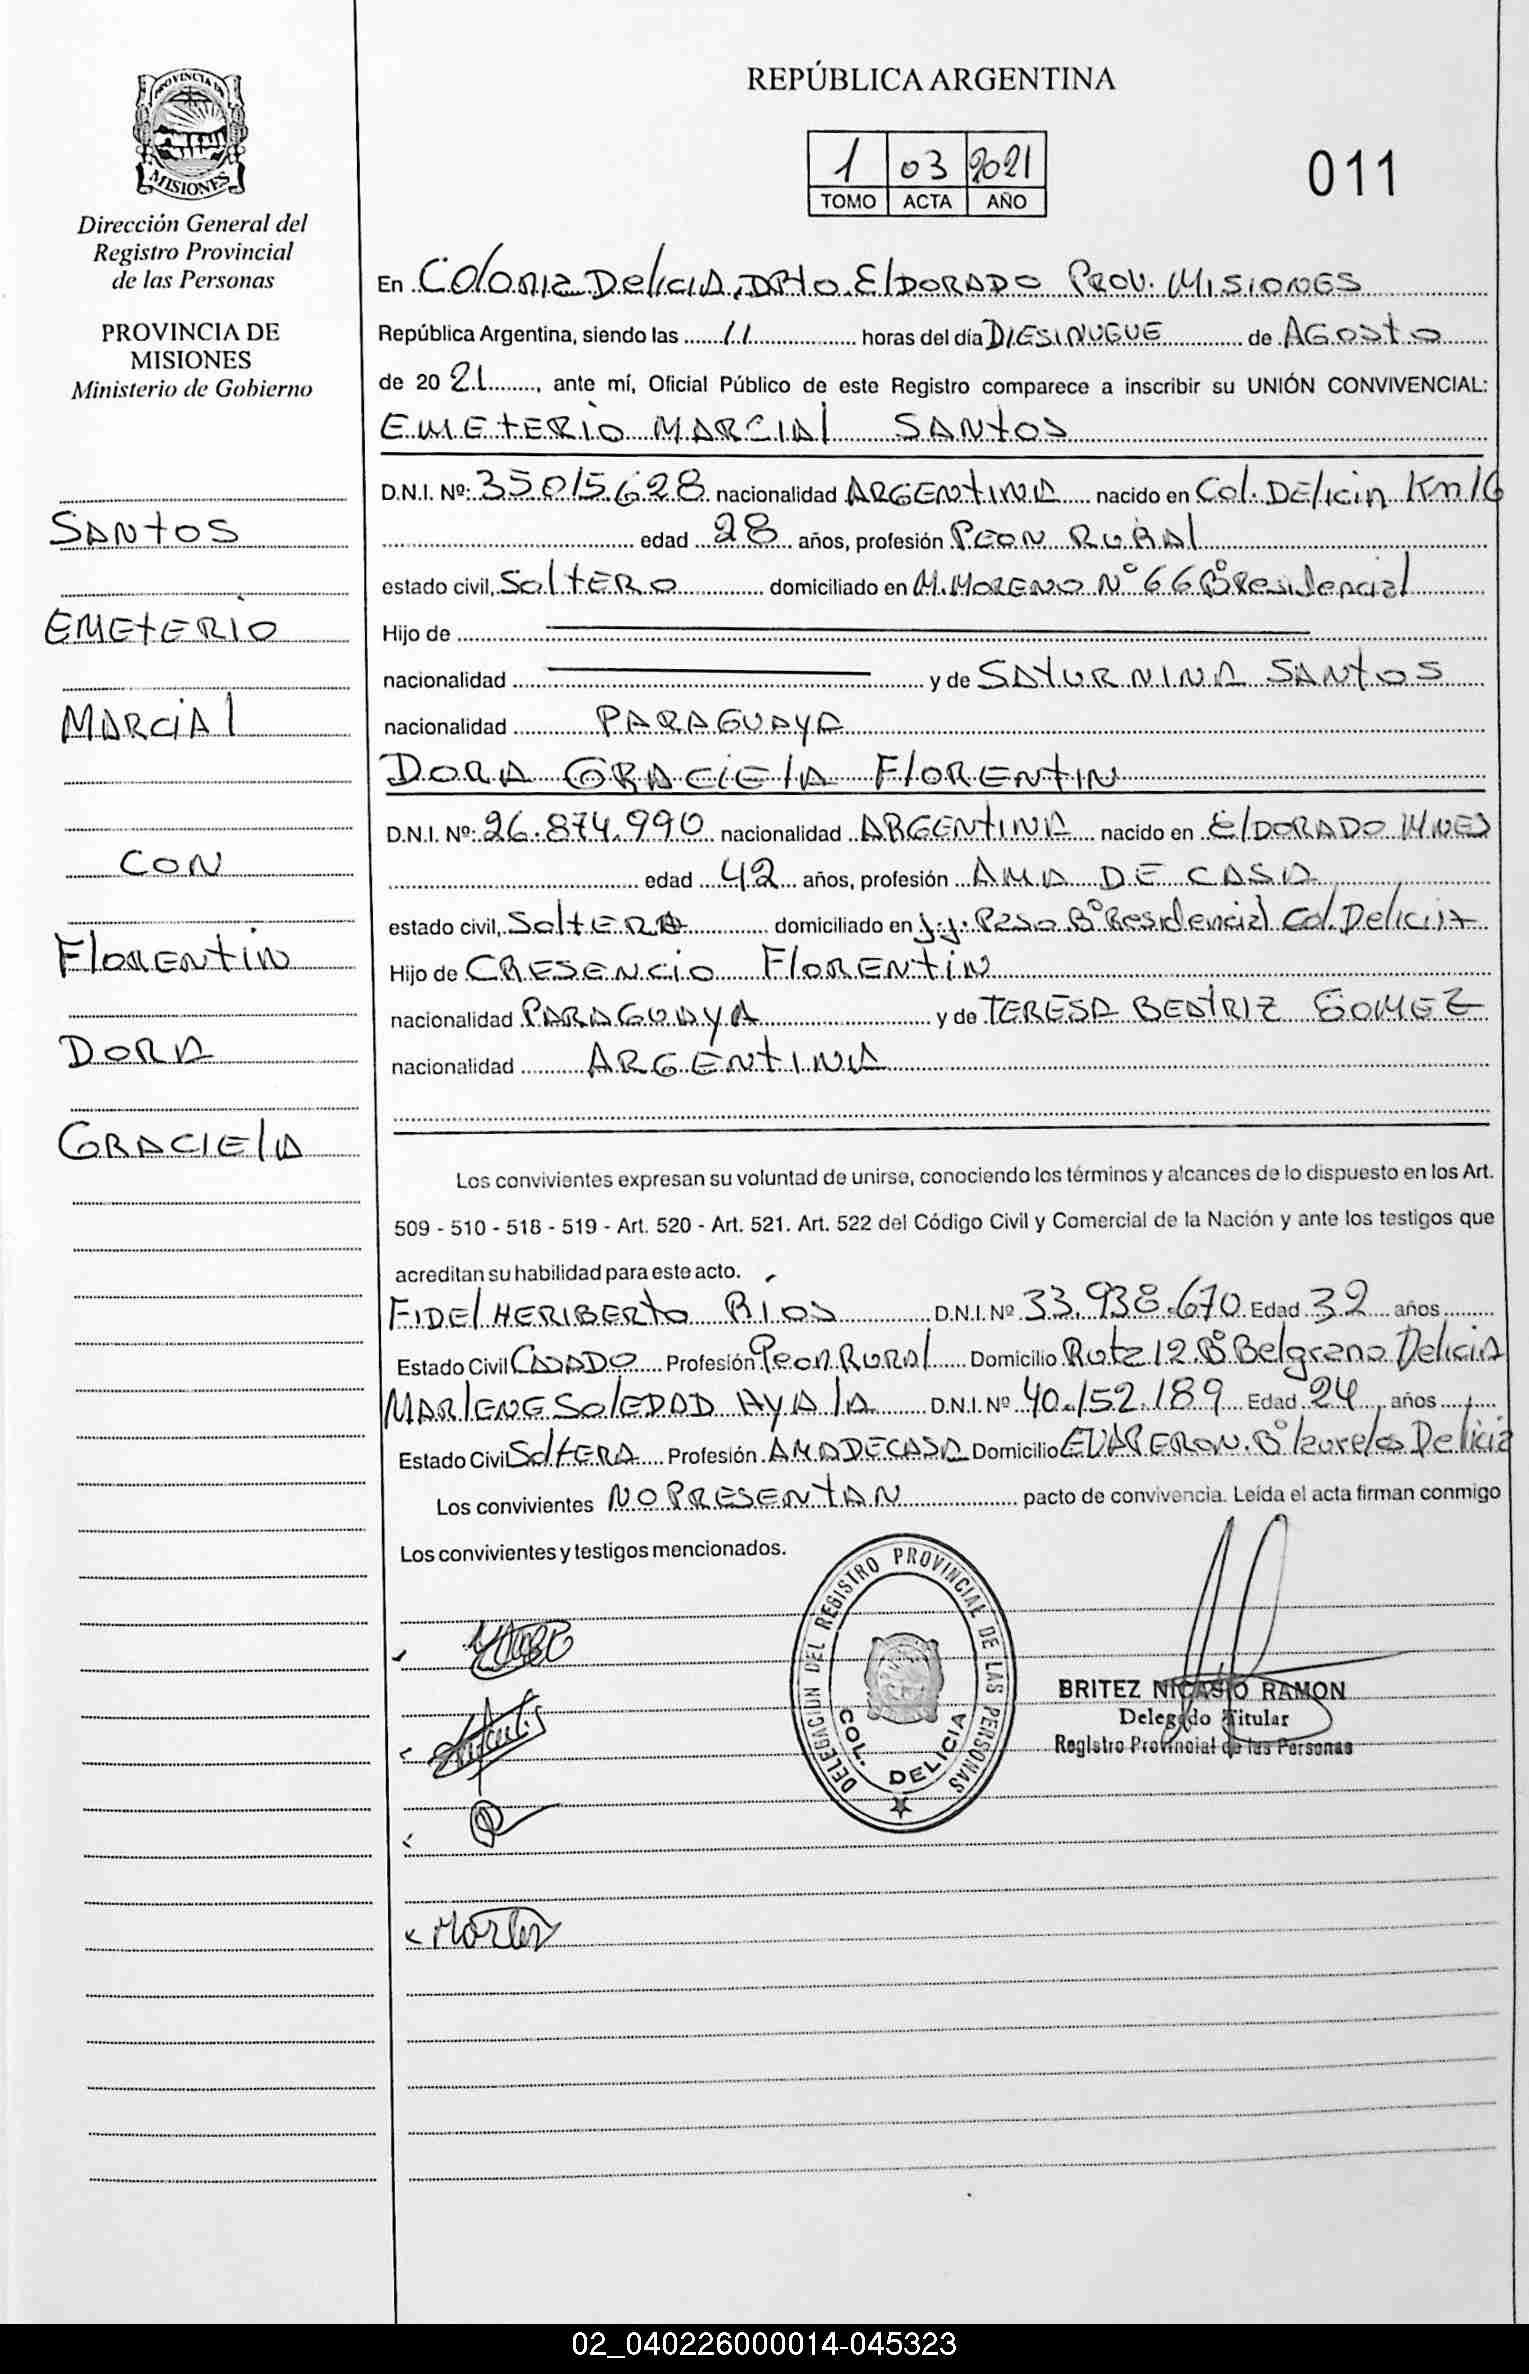 PROVINCIA DE
MISIONES
Dirección General del
Registro Provincial
de las Personas
PROVINCIA DE
MISIONES
Ministerio de Gobierno
SANTOS
EMETERIO
MARCIAL
CON
FlORENTIN
DORA
GRACIElA
REPÚBLICA ARGENTINA
1 03 2021
TOMO ACTA AÑO
011
En Colonia DeliciA, DPtO. ElDORADO PROV. MISIONES
República Argentina, siendo las 11 horas del día DIESINUEUE de AGOSto
de 20 21, ante mí, Oficial Público de este Registro comparece a inscribir su UNIÓN CONVIVENCIAL:
EMETERIO MARCIAl SANtOS
D.N.I. Nº: 35015628 nacionalidad ARGENtINA nacido en Col. DEliciA Km 16
edad 28 años, profesión PEON RURAl
estado civil, SoltERO domiciliado en M. MORENO Nº 66 Bº Residencial
Hijo de
nacionalidad y de SATURNINA SANtOS
nacionalidad PARAGUAYA
DORA GRACIElA FlORENtIN
D.N.I. Nº: 26.874.990 nacionalidad ARGENtINA nacido en ElDORADO MNES
edad 42 años, profesión AMA DE CASA
estado civil, SoltERA domiciliado en J.J. Paso Bº Residencial Col. DeliciA
Hijo de CRESENCIO FlORENtIN
nacionalidad PARAGUAYA y de TERESA BEATRIZ GOMEZ
nacionalidad ARGENtINA
Los convivientes expresan su voluntad de unirse, conociendo los términos y alcances de lo dispuesto en los Art.
509 - 510 - 518 - 519 - Art. 520 - Art. 521. Art. 522 del Código Civil y Comercial de la Nación y ante los testigos que
acreditan su habilidad para este acto.
FIDEl HERIBERtO RIOS D.N.I. Nº 33.938.670 Edad 32 años
Estado Civil CASADO Profesión Peon RURAl Domicilio Ruta 12 Bº Belgrano DeliciA
MARlENE SolEDAD AYAlA D.N.I. Nº 40.152.189 Edad 24 años
Estado Civil SoltERA Profesión AMA DE CASA Domicilio EVA PERON Bº laureles Delicia
Los convivientes NO PRESENtAN pacto de convivencia. Leída el acta firman conmigo
Los convivientes y testigos mencionados.
DELEGACION DEL REGISTRO PROVINCIAL DE LAS PERSONAS
COL. DELICIA
BRITEZ NICASIO RAMON
Delegado Titular
Registro Provincial de las Personas
02_040226000014-045323